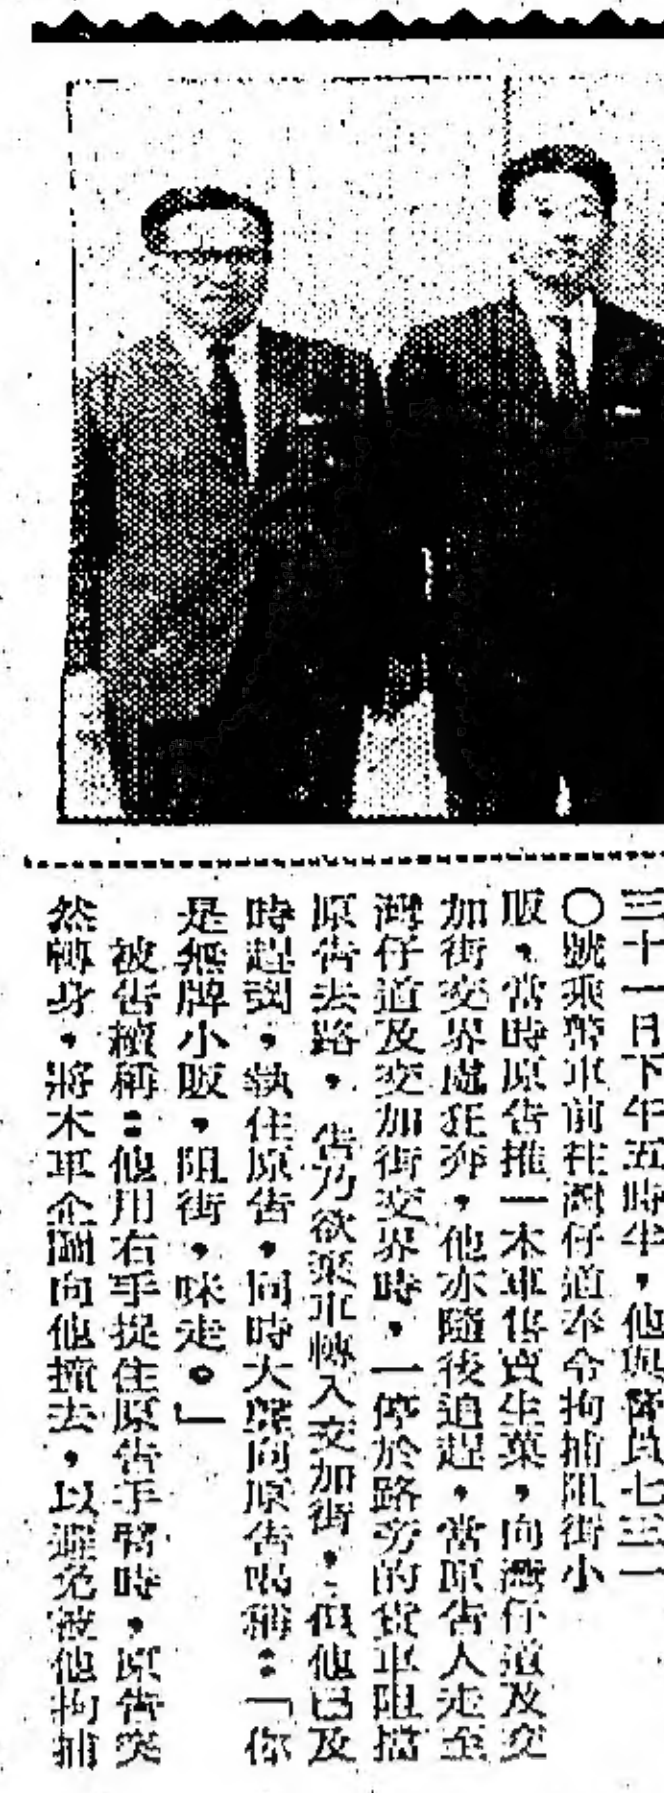 三十一日下午五時半，他與警員七三一
〇號乘警車前往灣仔道奉令拘捕阻街小
販，當時原告推一木車售賣生菓，向灣仔道及交
加街交界處狂奔，他亦隨後追趕，當原告人走至
灣仔道及交加街交界時，一停於路旁的貨車阻擋
原告去路，告乃欲棄車轉入交加街，但他已及
時趕到，執住原告，同時大聲向原告喝稱：「你
是無牌小販，阻街，咪走。」
被告續稱：他用右手捉住原告手臂時，原告突
然轉身，將木車企圖向他撞去，以避免被他拘捕